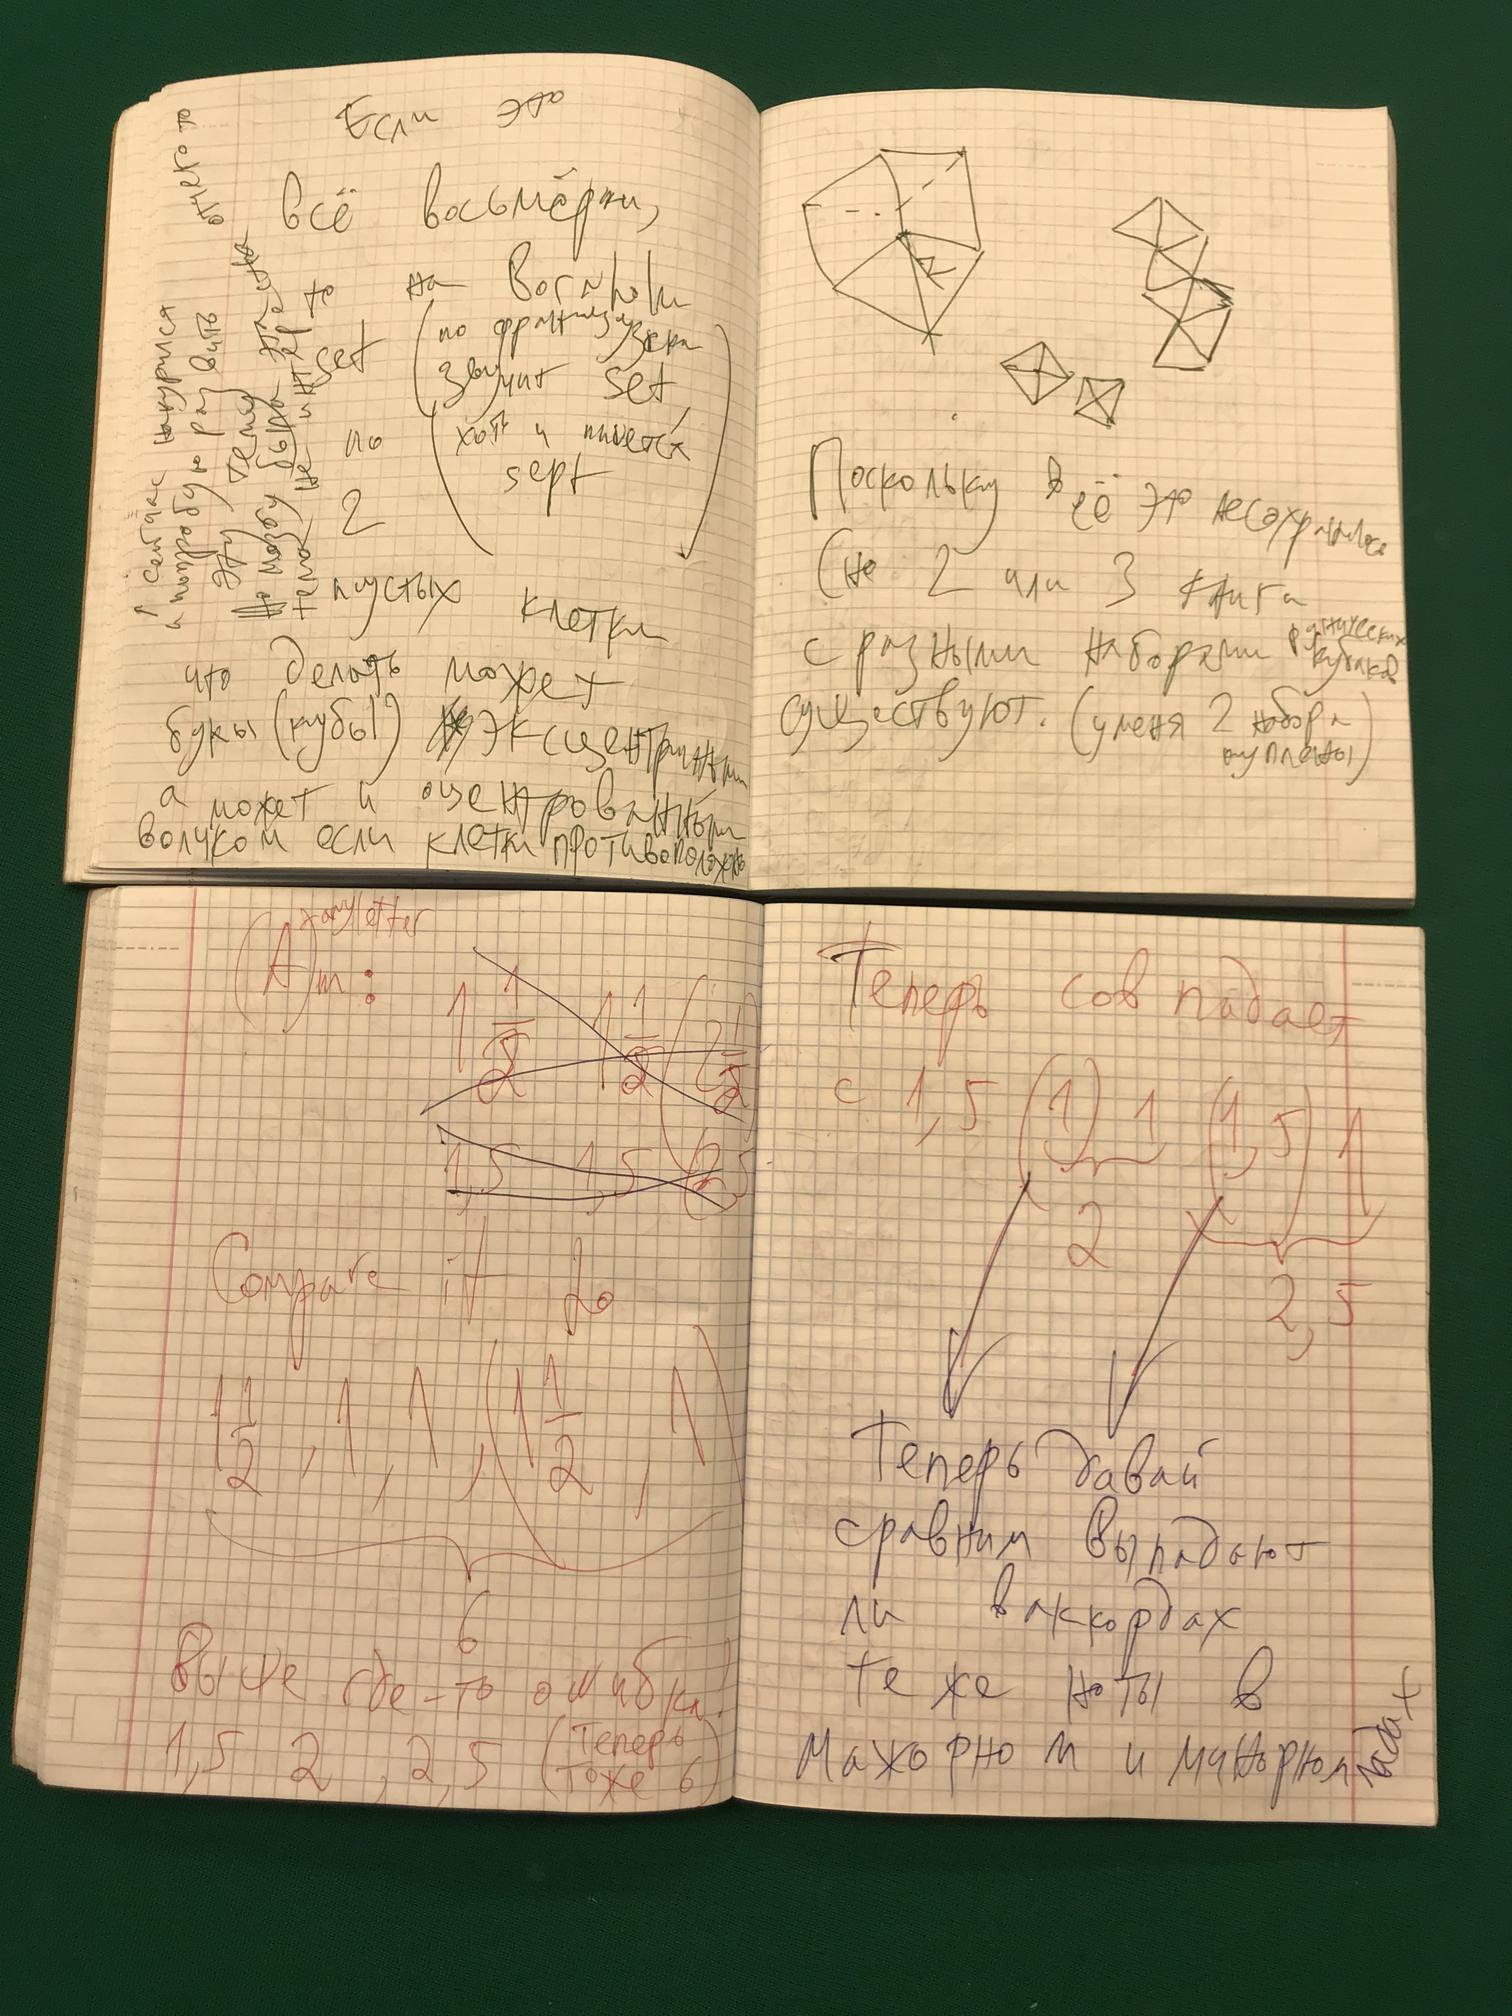 Если это
всё восьмёрки,
то на Bornholm
set (по французски
звучит set
хоть и пишется
sept)
по
2
пустых клетки
что делать может
буквы (кубы) эксцентричным
а может и оцентрованным
волчком если клетки противоположны
я сейчас накурился
и попробую развить
эту тему
отчего то
Поскольку всё это несохранилось
(но 2 или 3 книга
с разными наборами рунических
кубиков
существуют. (у меня 2 набора
куплены)
(A)m: any letter
1 1/2 1 1/2 (2 1/2)
1,5 1,5 (2,5)
Compare it to
1 1/2, 1, 1, (1 1/2, 1)
6
Выше где-то ошибка!
1,5 2, 2,5 (теперь
тоже 6)
Теперь совпадает
с 1,5 (1) 1 (1,5) 1
2
2,5
Теперь давай
сравним выпадают
ли в аккордах
те же ноты в
мажорном и минорном ладах